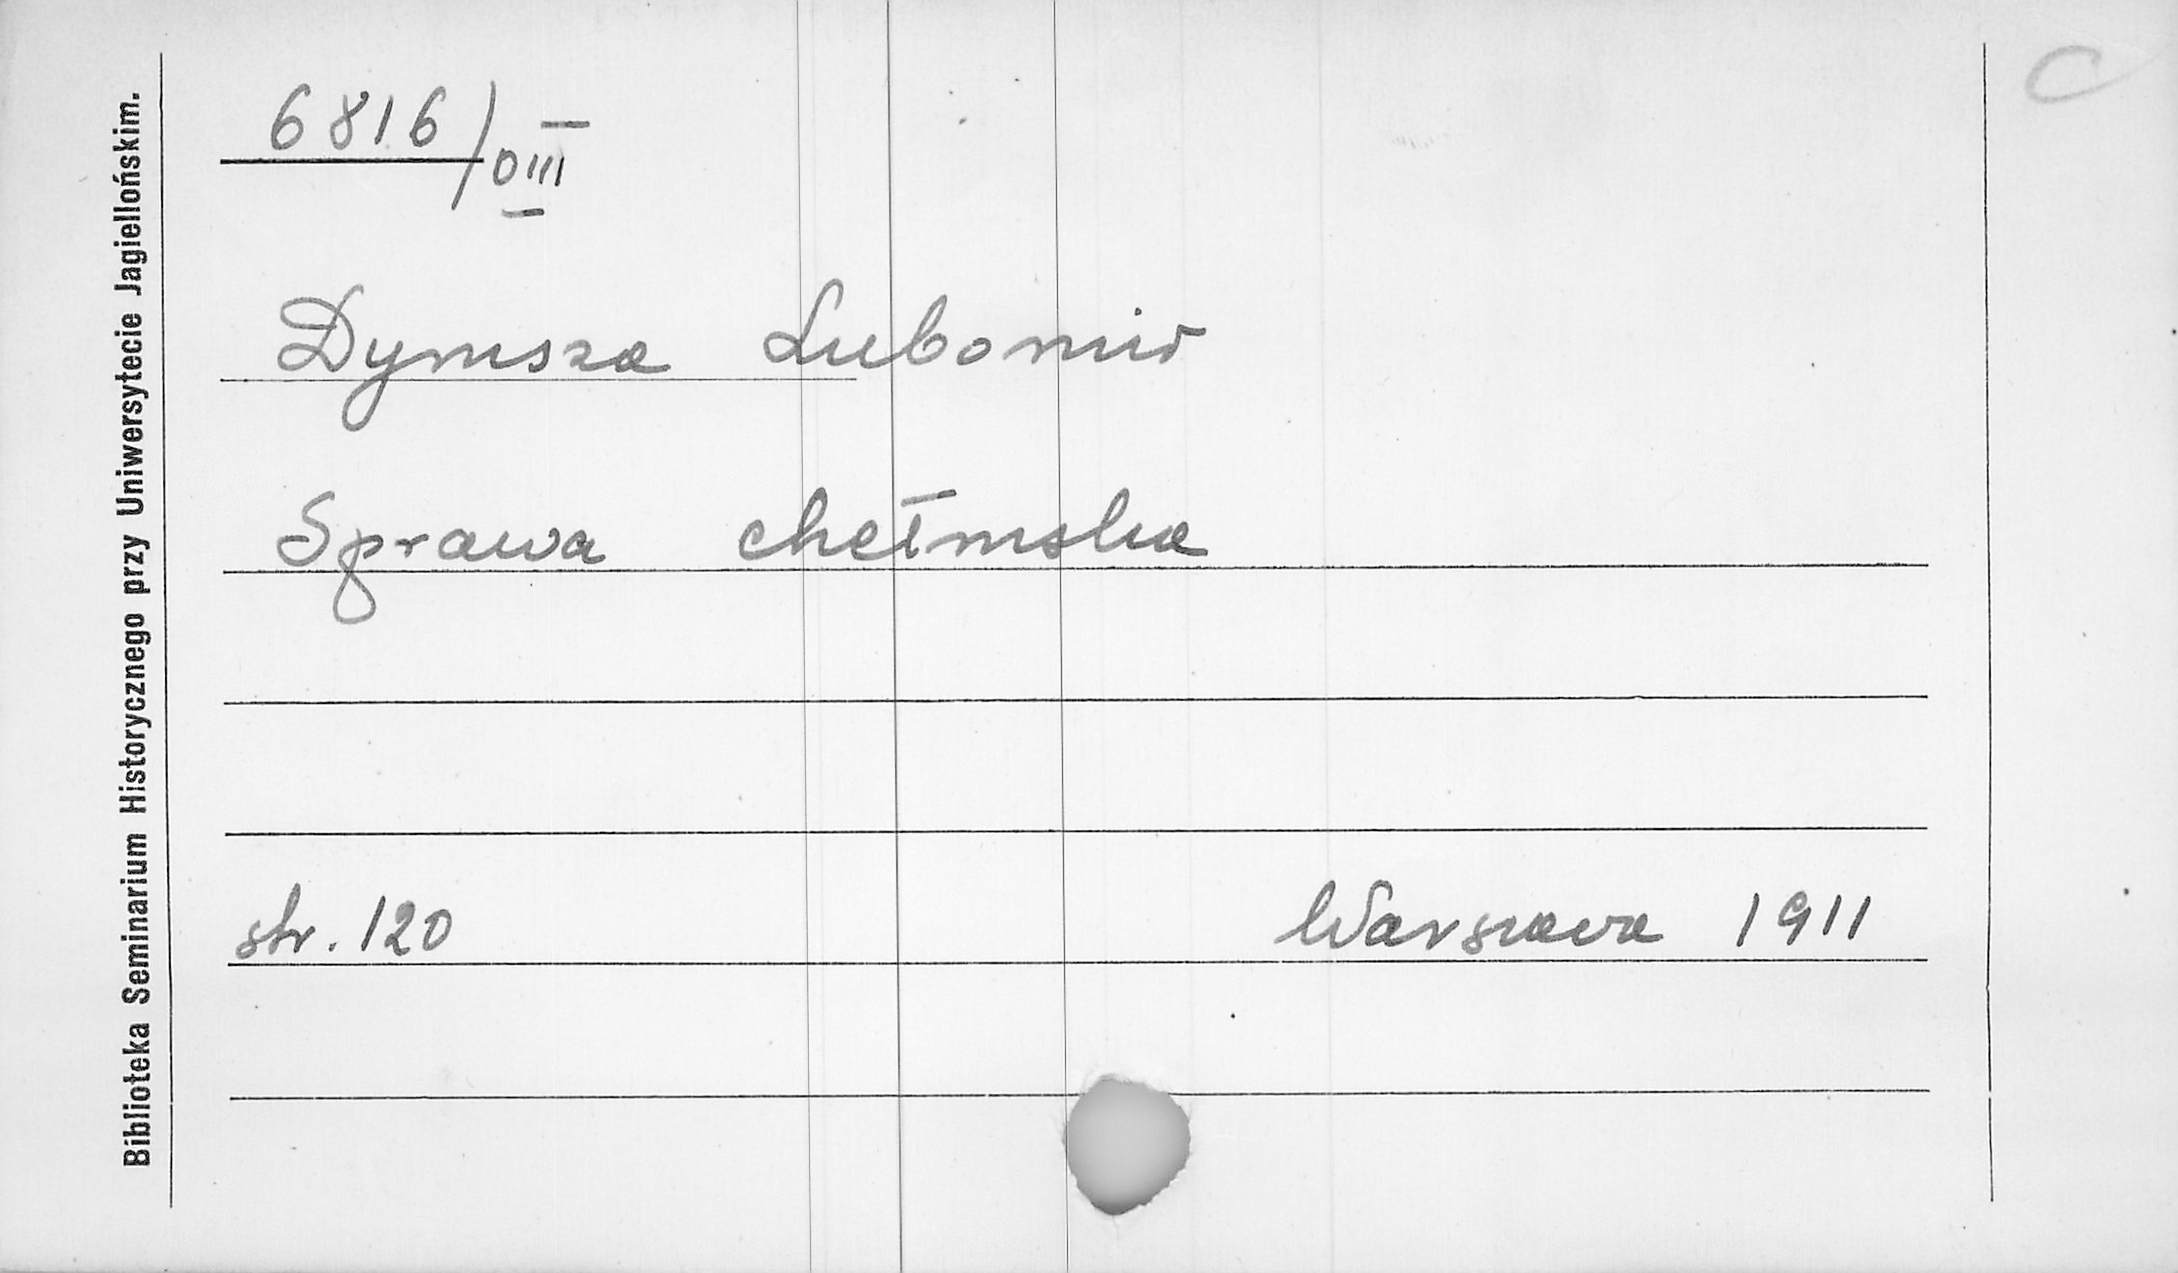 Biblioteka Seminarium Historycznego przy Uniwersytecie Jagiellońskim.
6816/DIII
Dymsza Lubomir
Sprawa chełmska
str. 120 Warszawa 1911
C